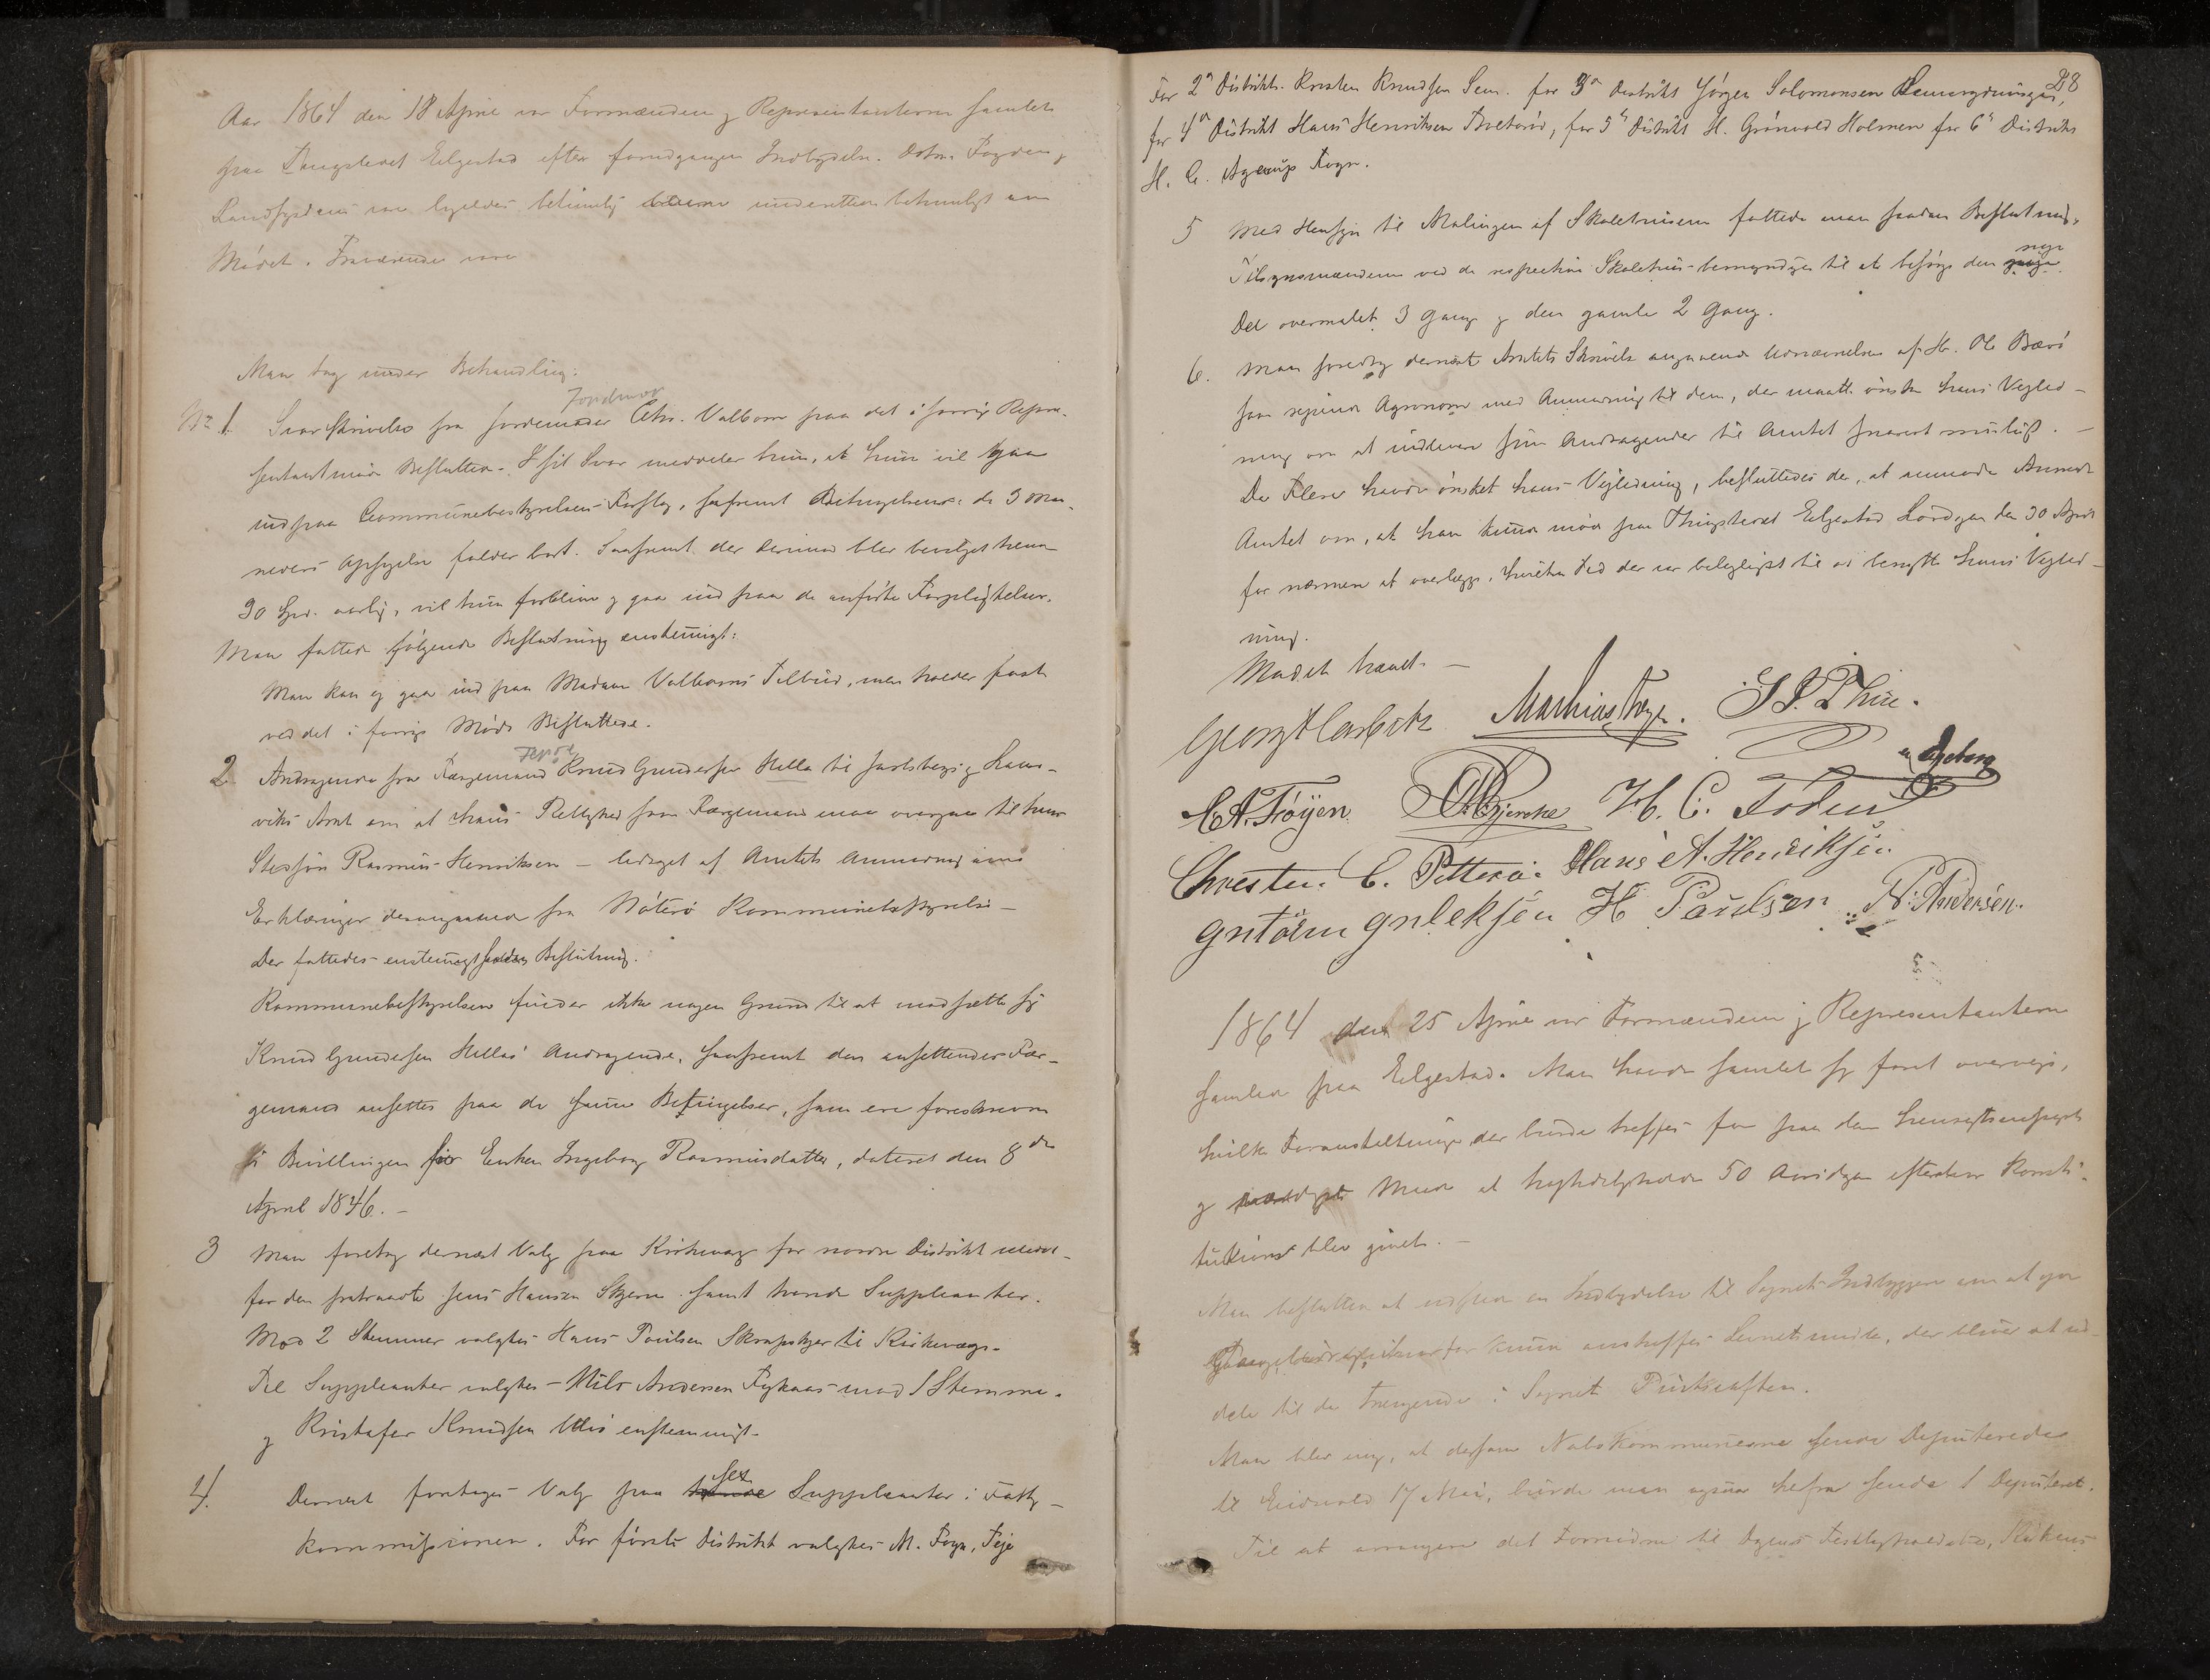 Aar 1864 den 18 April var Formændene og Repræsentanterne samlet
paa Thingstedet Eelgestad efter foregangen Indbydelse. Fogden og
var ligeledes betimelig underrettede betimeligt om
Mødet. Fraværende vare
Man tog under Behandling:
Jordmor
No 1. Svarskrivelse fra Jordemoder Chr. Valborn paa det i forrige Repræ-
sentantmøde Besluttede. I sit Svar meddeler hun, at hun vil gaa
ind paa Communebestyrelsens Forslag, saafremt Betingelserne: de 3 Maa-
neders Opsigelse falder bort. Saafremt der derimod blev bevilget hende
30 Spd. aarlig, vil hun forblive og gaa ind paa de anførte Forpligtelser.
Man fattede følgende Beslutning enstemmigt:
Man kan ej gaa ind paa Madam Valborns Tilbud, men holder fast
ved det i forrige Møde Besluttede.
2. Andragende fra Færgemand Knud Gundersen Hella til Jarlsberg og Laur-
viks Amt om at hans Rettighed som Færgemand maa overgaa til hans
Stefsøn Rasmus Henriksen – ledsaget af Amtets Anmodning om
Erklæringer desangaaende fra Nøterø Kommunebestyrelse –
Der fattedes enstemmigt saadan Beslutning.
Kommunebestyrelsen finder ikke nogen Grund til at modsætte sig
Knud Gundersen Hellas Andragende, saafremt den ansettendes Fær-
gemand ansettes paa de samme Betingelser, som ere foreskrevne
i Bevillingen for Enken Ingeborg Rasmusdatter, dateret den 8de
April 1846. –
3 Man foretog dernæst Valg paa Kirkeværge for nordre Distrikt istede-
for den fratraadte Jens Hansen Skjerve samt tvende Suppleanter.
Mod 2 Stemmer valgtes Hans Poulsen Skrapskjer til Kirkeværge.
Til Suppleanter valgtes – Nils Andersen mod 1 Stemme.
og Kristofer Knudsen enstemmigt.
sex
4. Dernæst foretoges Valg paa Suppleanter i Fattig-
kommissionen. For første Distrikt valgtes M. Foyn, Teje
28
For 2n Distrikt Kristen Knudsen Sem. for 3n Distrikt Jørgen Salomonsen
for 4n Distrikt Hans Henriksen , for 5n Distrikt H. Grønvold Holmen for 6n Distrikt
H. C. Agerup Foyn.
5 Med Hensyn til Malingen af Skolehusene fattede man saadan Beslutning,
nye
Tilsynsmændene ved de respective Skolehus bemyndiges til at besørge den
Del overmalet 3 Gange og den gamle 2 Gang.
6. Man foretog dernæst Amtets Skrivelse angaaende Udnævnelsen af Hr. Ole
som reisende Agronom med Anmodning til dem, der maatte ønske hans Veiled-
ning om at indlevere sine Andragender til Amtet snarest muligt. –
Da Flere havde ønsket hans Vejledning, besluttedes der, at anmode
Amtet om, at han kunde møde paa Thingstedet Eelgestad Lørdagen den 30 April
for nærmere at overlægge, hvilken Tid der var beleiligst til at benytte hans Vejled-
ning.
Mødet hævet. –
Mathias Foyn.
C.A. Frøyen. O. Bjercke H. C.
Christen C. Hans A. Henriksen
H Paulsen N. Andersen.
1864 den 25 April var Formændene og Repræsentanterne
samlede paa Eelgestad. Man havde samlet sig for at overveie,
hvilke Foranstaltninger der burde træffes for paa den hensigtsmæssigste
og Maade at høitideligholde 50 Aarsdagen efterat Konsti-
tutionen blev givet. –
Man besluttede at udstede en Indbydelse til Sognets Indbyggere om at gjøre
for kunne anskaffes Levnetsmidler, der bliver at ud-
dele til de Trængende i Sognet Pintseaften.
Man blev enig, at dersom Nabokommunerne sende Deputerede
til Eidsvold 17 Mai, burde man ogsaa herfra sende 1 Deputeret.
Til at arrangere det Fornødne til Dagens Festligholdelse,